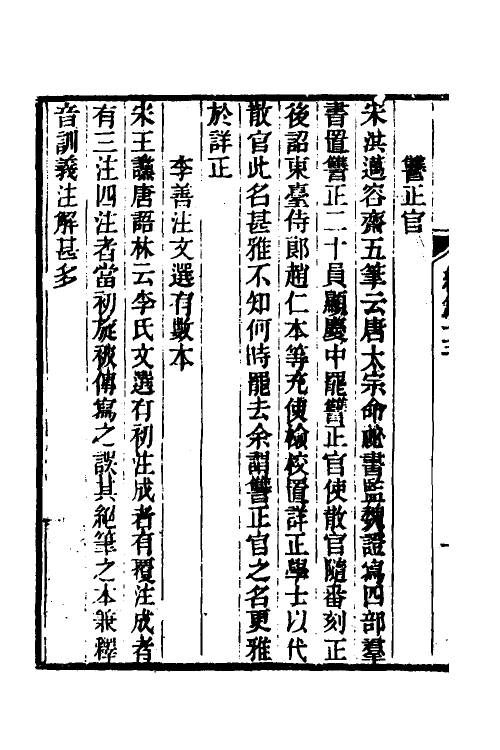 讐正官
宋洪邁容齋五筆云唐太宗命祕書監魏證寫四部羣
書置讐正二十員顯慶中罷讐正官使散官隨番刻正
後詔東臺侍郎趙仁本等充使檢校置詳正學士以代
散官此名甚雅不知何時罷去余謂讐正官之名更雅
於詳正
李善注文選有數本
宋王讜唐語林云李氏文選有初注成者有覆注成者
有三注四注者當初旋被傳寫之誤其絕筆之本兼釋
音訓義注解甚多